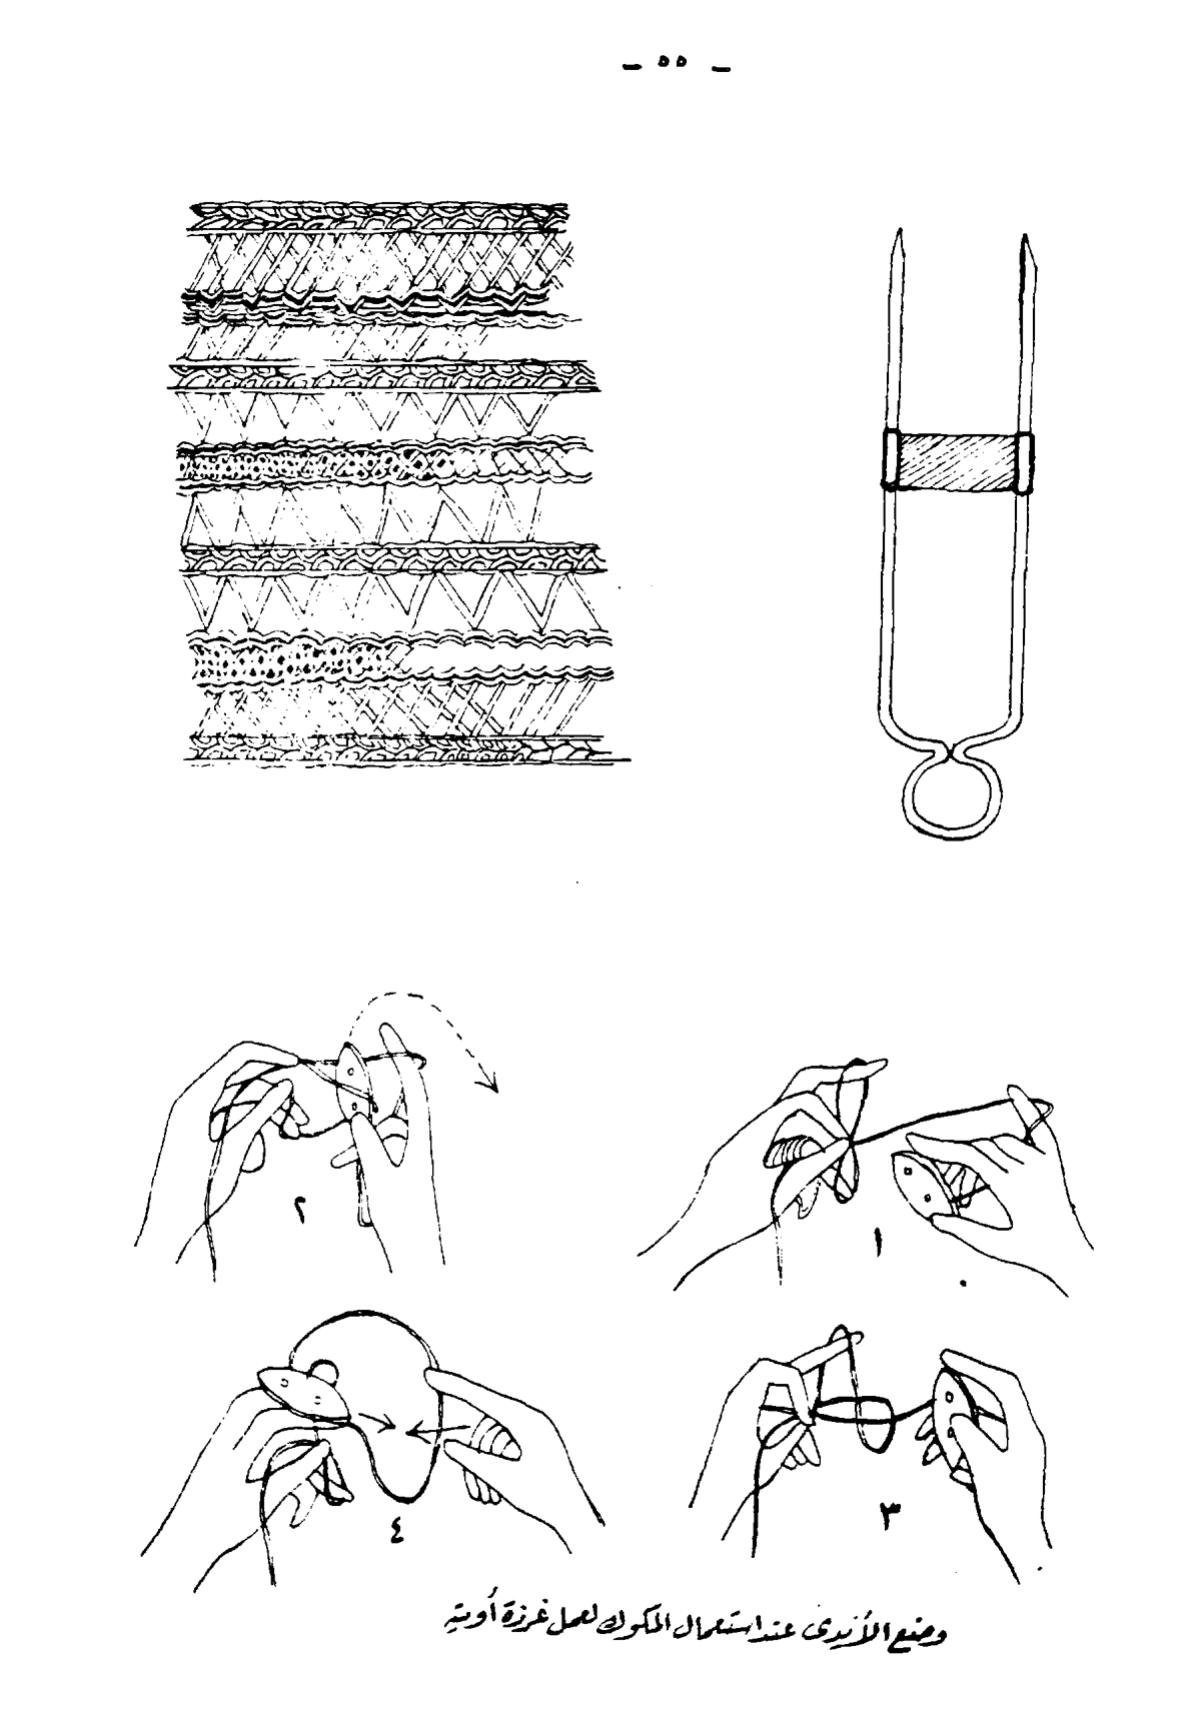 - ٥٥ -
٢
١
٤
٣
وضع الأيدى عند استعمال المكوك لعمل غرزة أوية